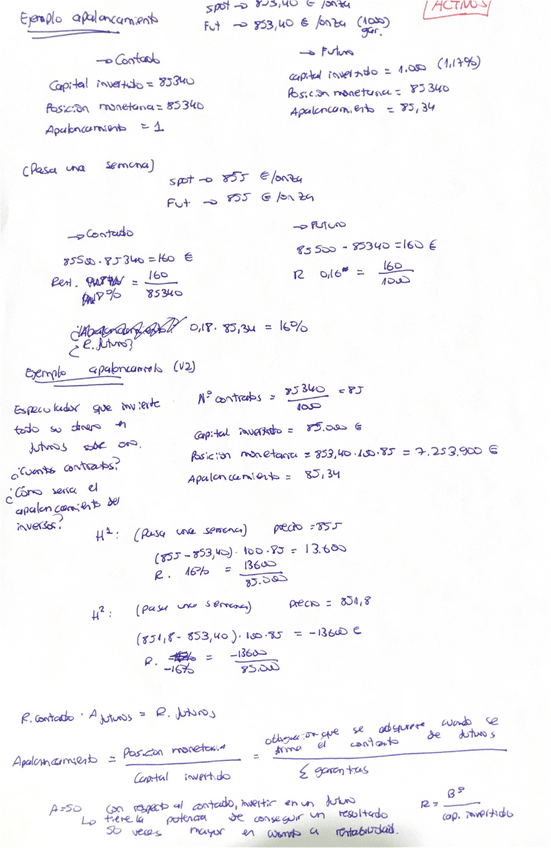 Ejemplo apalancamiento
spot → 853,40 € /onza
Fut → 853,40 € /onza (1000) gar.
ACTIVOS
→ Contado
Capital invertido = 85340
Posición monetaria = 85340
Apalancamiento = 1
→ Futuro
Capital invertido = 1.000 (1,17%)
Posición monetaria = 85340
Apalancamiento = 85,34
(Pasa una semana)
spot → 855 €/onza
Fut → 855 €/onza
→ Contado
85500 - 85340 = 160 €
Rent. = 160 / 85340
→ Futuro
85500 - 85340 = 160 €
R 0,16 = 160 / 1000
¿R. futuro? 0,18 · 85,34 = 16%
Ejemplo apalancamiento (V2)
Especulador que invierte
todo su dinero en
futuros sobre oro.
¿Cuantos contratos?
¿Cómo sería el
apalancamiento del
inversor?
Nº contratos = 85340 / 1000 = 85
Capital invertido = 85.000 €
Posición monetaria = 853,40 · 100 · 85 = 7.253.900 €
Apalancamiento = 85,34
H1: (Pasa una semana) precio = 855
(855 - 853,40) · 100 · 85 = 13.600
R. 16% = 13600 / 85.000
H2: (Pasa una semana) precio = 851,8
(851,8 - 853,40) · 100 · 85 = -13600 €
R. -16% = -13600 / 85.000
R. contado · A futuros = R. futuros
Apalancamiento = Posición monetaria / Capital invertido = obligación que se adquiere cuando se firma el contrato de futuros / Σ garantías
A=50 Con respecto al contado, invertir en un futuro
tiene la potencia de conseguir un resultado
50 veces mayor en cuanto a rentabilidad.
R = Bº / cap. invertido